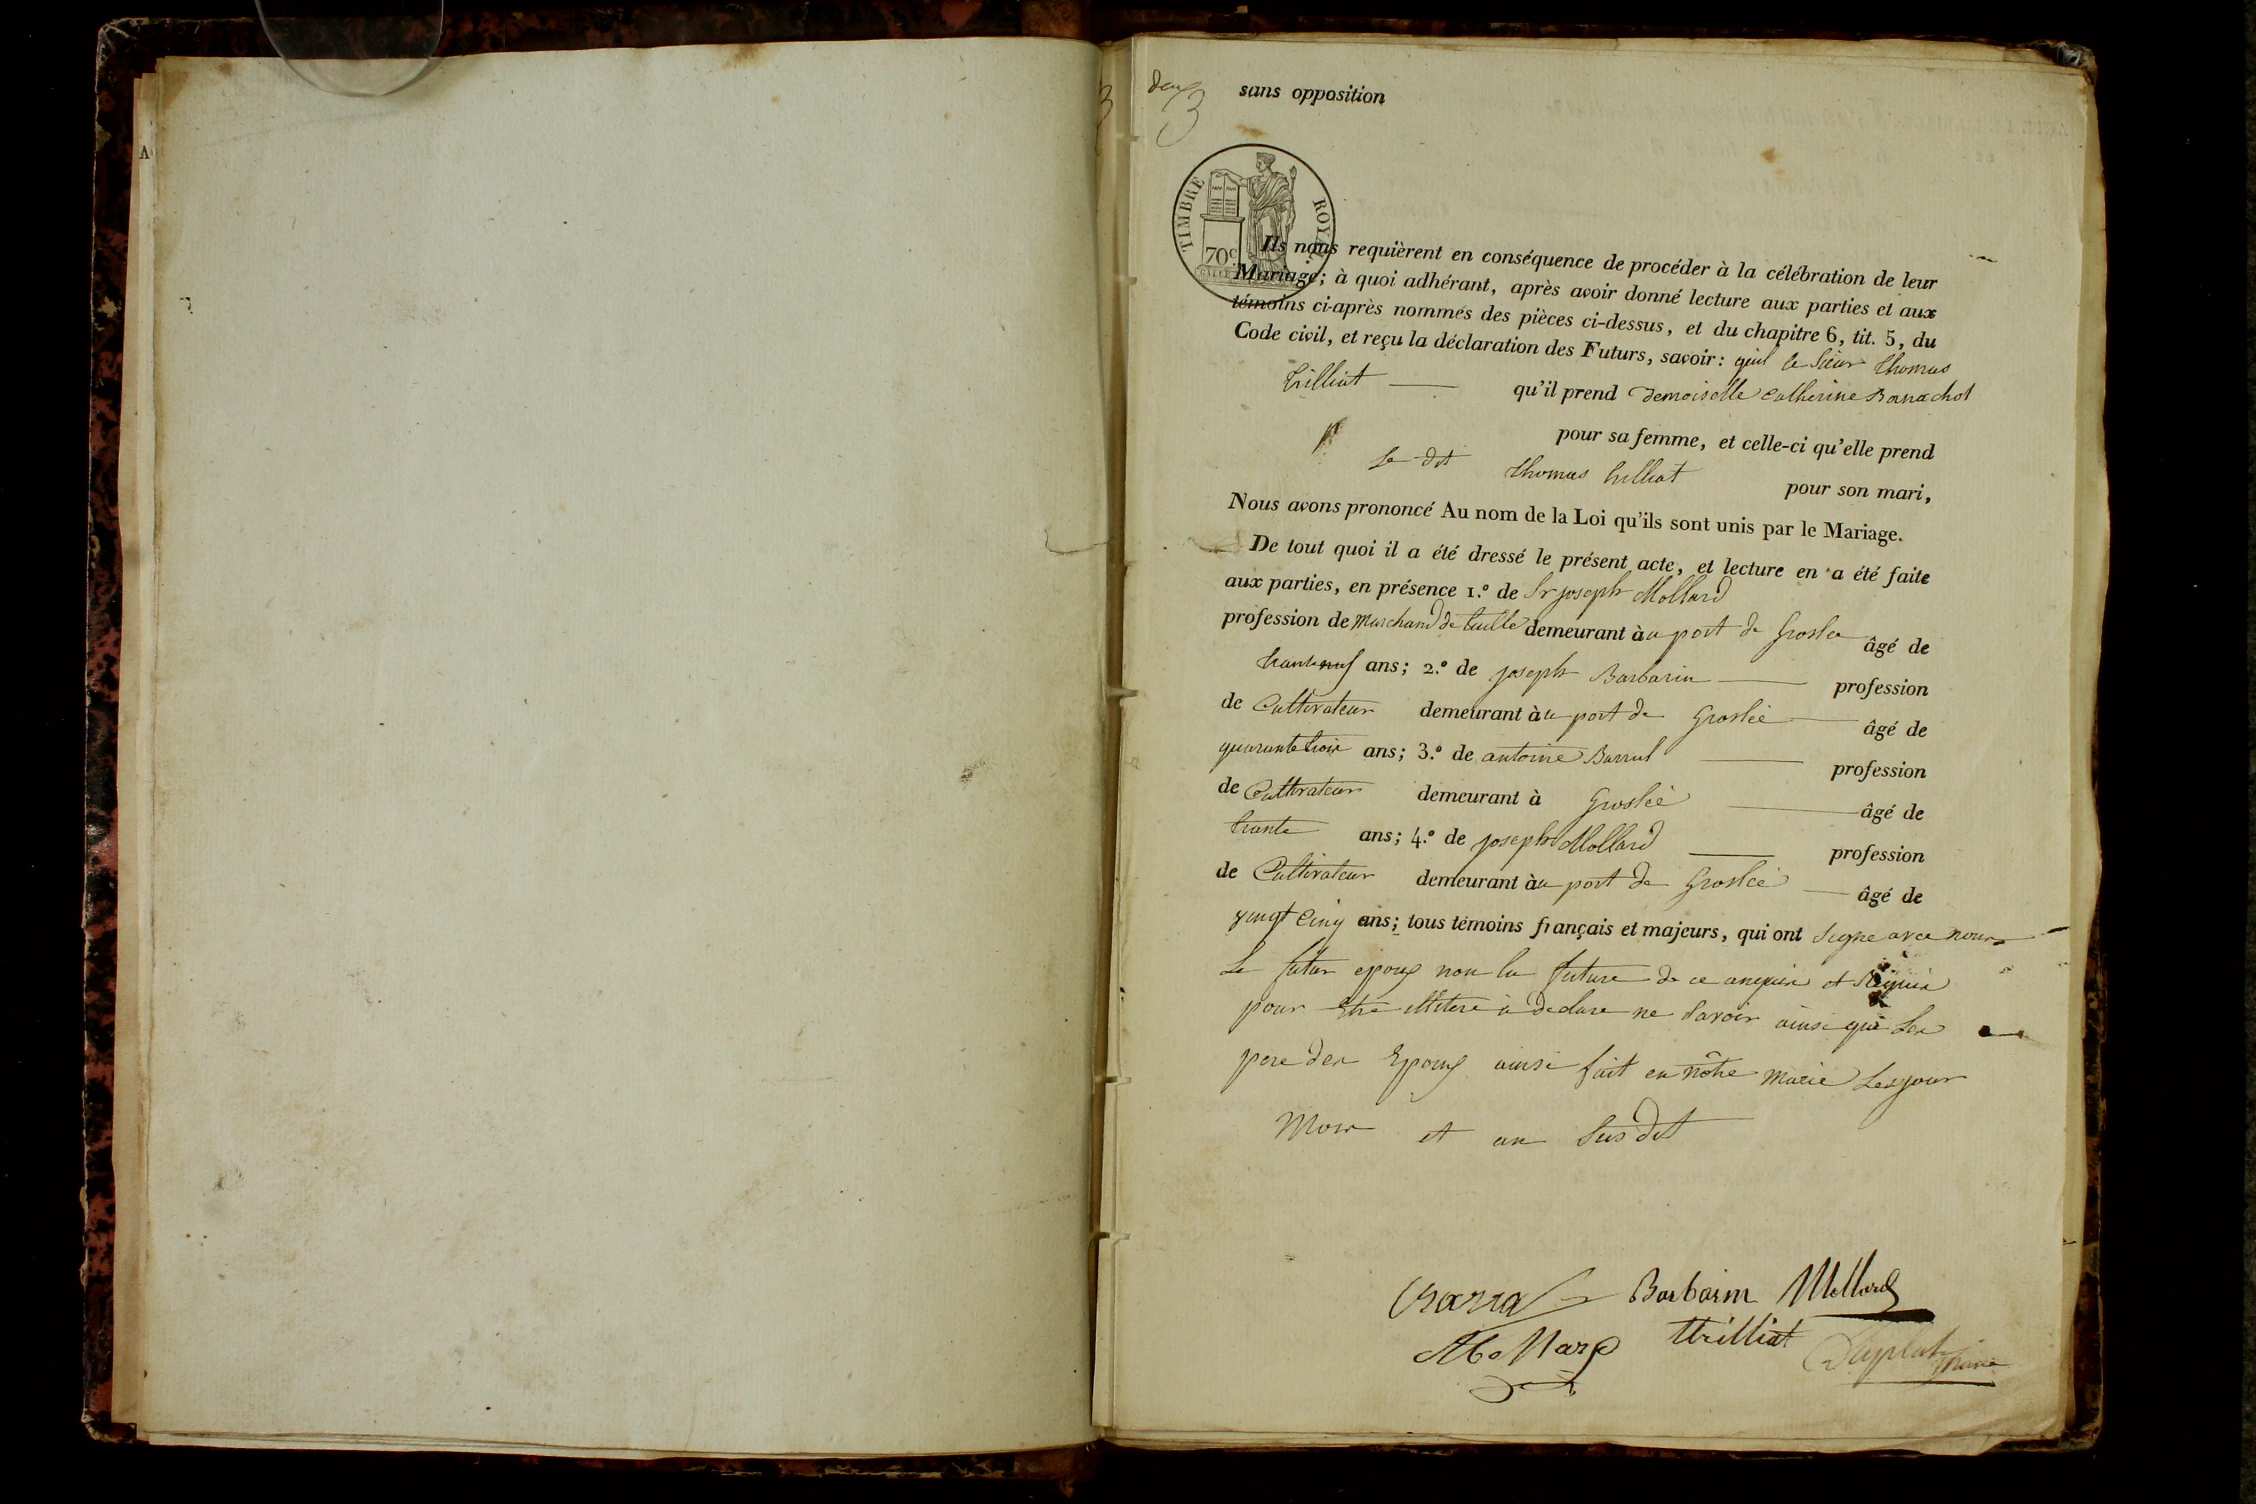 A
deux
3
sans opposition
TIMBRE ROYAL
70c
Ils nous requièrent en conséquence de procéder à la célébration de leur
Mariage; à quoi adhérant, après avoir donné lecture aux parties et aux
témoins ci-après nommés des pièces ci-dessus, et du chapitre 6, tit. 5, du
Code civil, et reçu la déclaration des Futurs, savoir: quil le Sieur thomas
trilliat qu'il prend demoiselle catherine Banachot
pour sa femme, et celle-ci qu'elle prend
Le dit thomas trilliat pour son mari,
Nous avons prononcé Au nom de la Loi qu'ils sont unis par le Mariage.
De tout quoi il a été dressé le présent acte, et lecture en a été faite
aux parties, en présence 1.º de Sr joseph Mollard
profession de Marchand de tuille demeurant àu port de Groslée âgé de
trante neuf ans; 2.º de joseph Barbarin profession
de Cultivateur demeurant àu port de Groslée âgé de
quarante trois ans; 3.º de antoine Barral profession
de Cultivateur demeurant à Groslée âgé de
trante ans; 4.º de joseph Mollard profession
de Cultivateur demeurant àu port de Groslée âgé de
vingt Cinq ans; tous témoins français et majeurs, qui ont signe avec nous
Le futur epoux non la future de ce enquise et Requise
pour Etre illitere à declare ne savoir ainsi que Les
pere des Epoux ainsi fait en nôtre Marie Les jour
Mois et an Susdit
Barbarin Mollard
Mollard trilliat Duplatre Maire